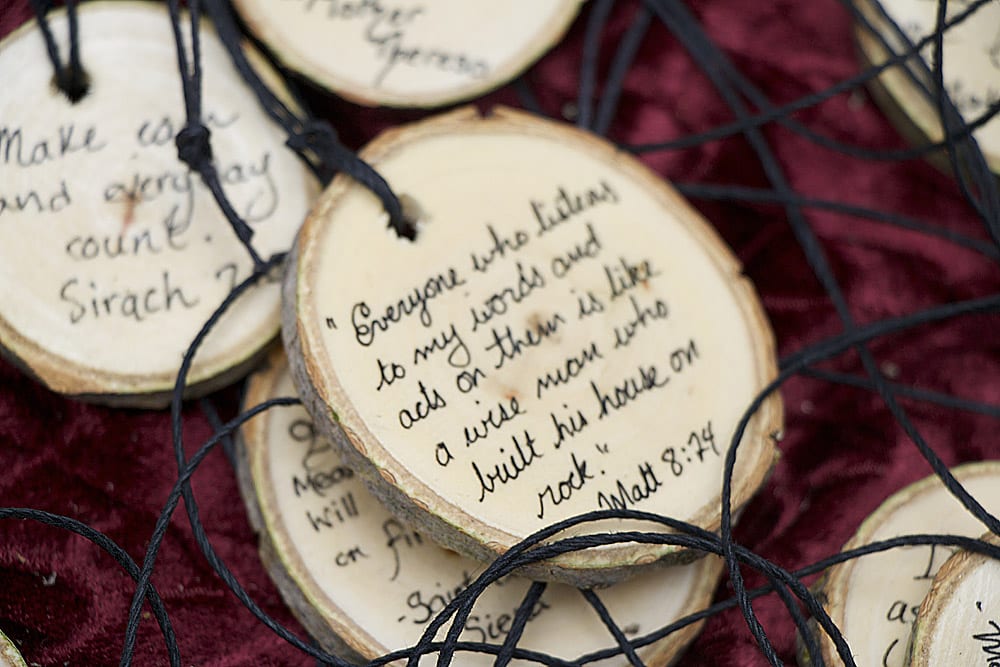 Mother
Make each
and everyday
count.
Sirach 7
"Everyone who listens
to my words and
acts on them is like
a wise man who
built his house on
rock."
Matt 8:24
will
on fi
Siena
I
as